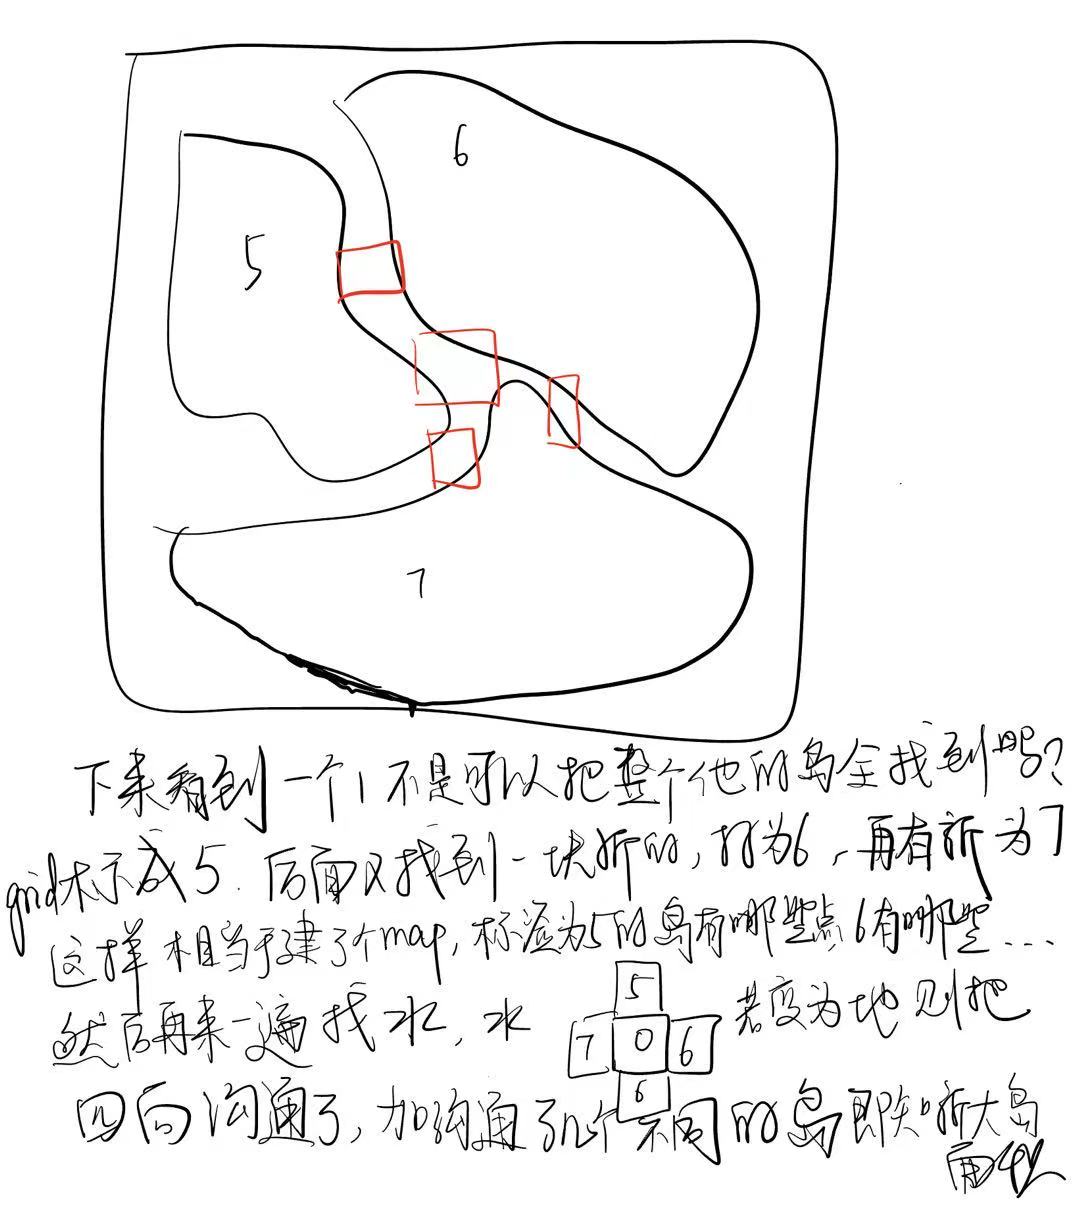 6
5
7
下来看到一个1不是可以把整个他的岛全找到吗?
grid标示成5.后面又找到一块新的,打为6,再有新为7
这样相当于建了个map,标为5的岛有哪些点6有哪些...
5
然后再来一遍找水,水 7 0 6 若变为地则把
6
四向沟通了,加沟通了几个不同的岛即知新大岛
面积